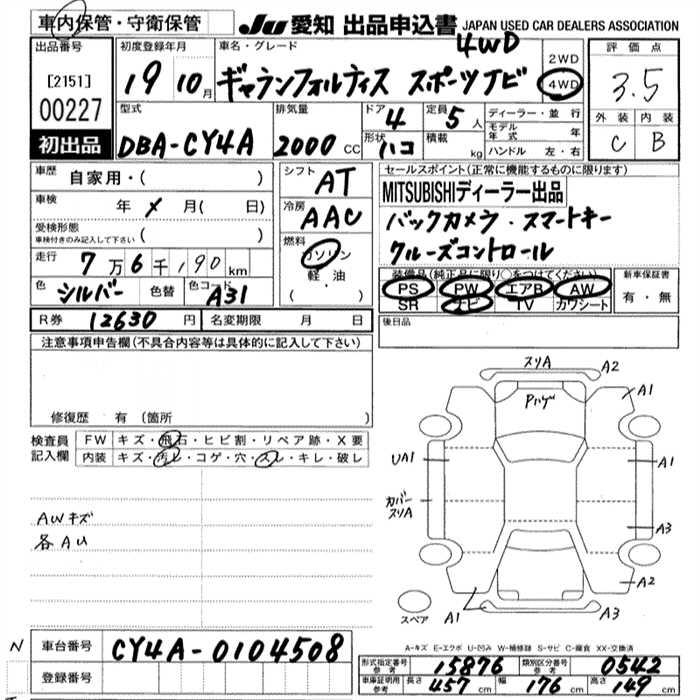 車内保管・守衛保管 JU 愛知 出品申込書 JAPAN USED CAR DEALERS ASSOCIATION
出品番号 [2151] 00227 初出品
初度登録年月 19 10月
車名・グレード 4WD
ギャランフォルティス スポーツナビ
2WD 4WD
評価点 3.5
外装 内装
C B
型式 DBA-CY4A
排気量 2000 CC
ドア 4 定員 5人
形状 ハコ 積載 kg
ディーラー・並行
モデル年式 年
ハンドル 左・右
車歴 自家用・( )
車検 年 メ 月( 日)
受検形態 車検付きのみ記入して下さい ( )
走行 7万6千190km
色 シルバー 色替 色コード A31
R券 12630円 名変期限 月 日
シフト AT
冷房 AAC
燃料 ガソリン 軽油 ( ・ )
セールスポイント(正常に機能するものに限ります)
MITSUBISHIディーラー出品
バックカメラ・スマートキー
クルーズコントロール
装備品(純正品に限り○をつけてください)
PS PW エアB AW
SR ナビ TV カワシート
新車保証書 有・無
後日品
注意事項申告欄(不具合内容等は具体的に記入して下さい)
修復歴 有 (箇所 )
検査員記入欄
FW キズ・飛石・ヒビ割・リペア跡・X要
内装 キズ・汚レ・コゲ・穴・スレ・キレ・破レ
AWキズ
各AU
スリA A2
Pハゲ A1
UA1 A1
カバースリA A3
A2
スペア A1 A3
A-キズ E-エクボ U-凹み W-補修跡 S-サビ C-腐食 XX-交換済
N 車台番号 CY4A-0104508
登録番号
形式指定番号 参考 15876 類別区分番号 参考 0542
車庫証明用 参考 長さ 457cm 幅 176cm 高さ 149cm